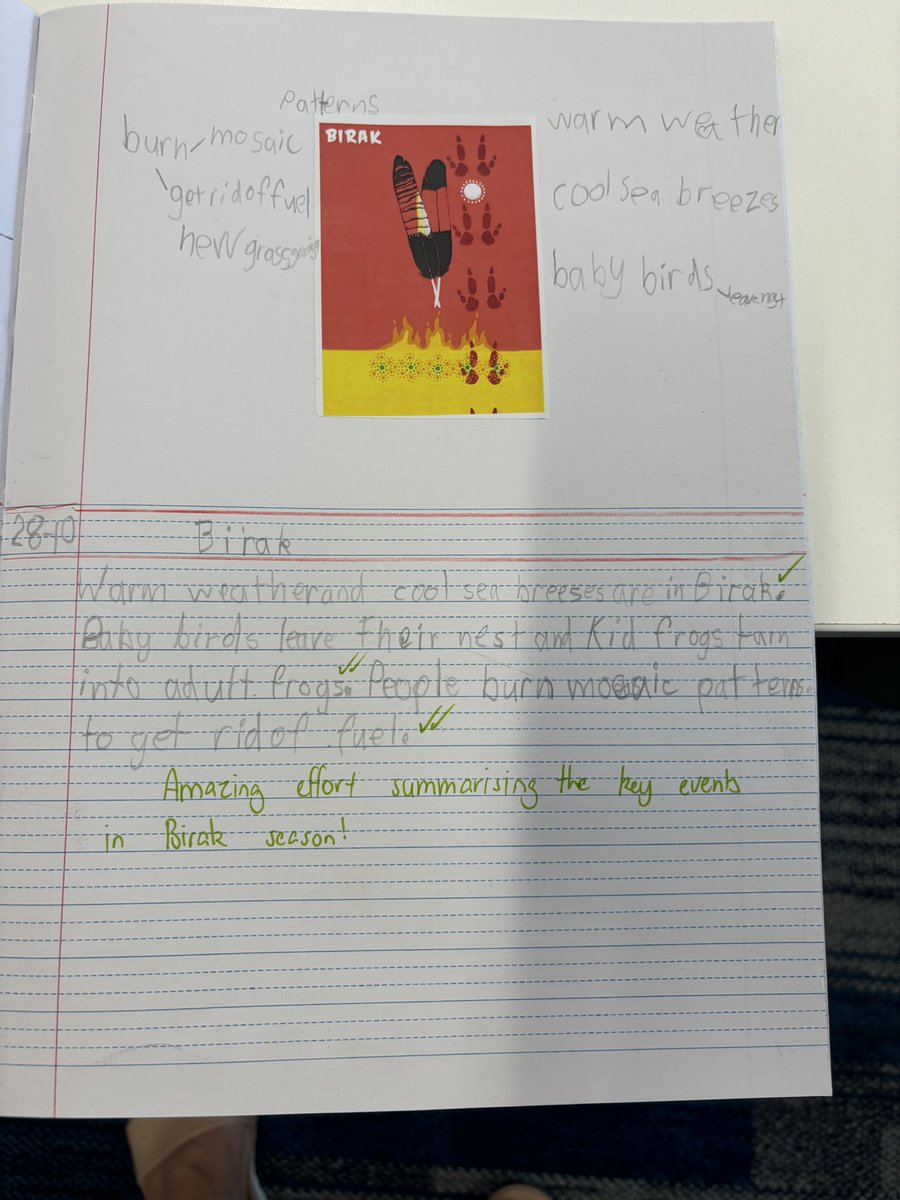 Patterns
burn mosaic
get rid of fuel
new grass
BIRAK
warm weather
cool sea breezes
baby birds
28-10
Birak
Warm weather and cool sea breeses are in Birak.
Baby birds leave their nest and Kid frogs turn
into adult frogs. People burn mosaic patterns
to get rid of fuel.
Amazing effort summarising the key events
in Birak season!